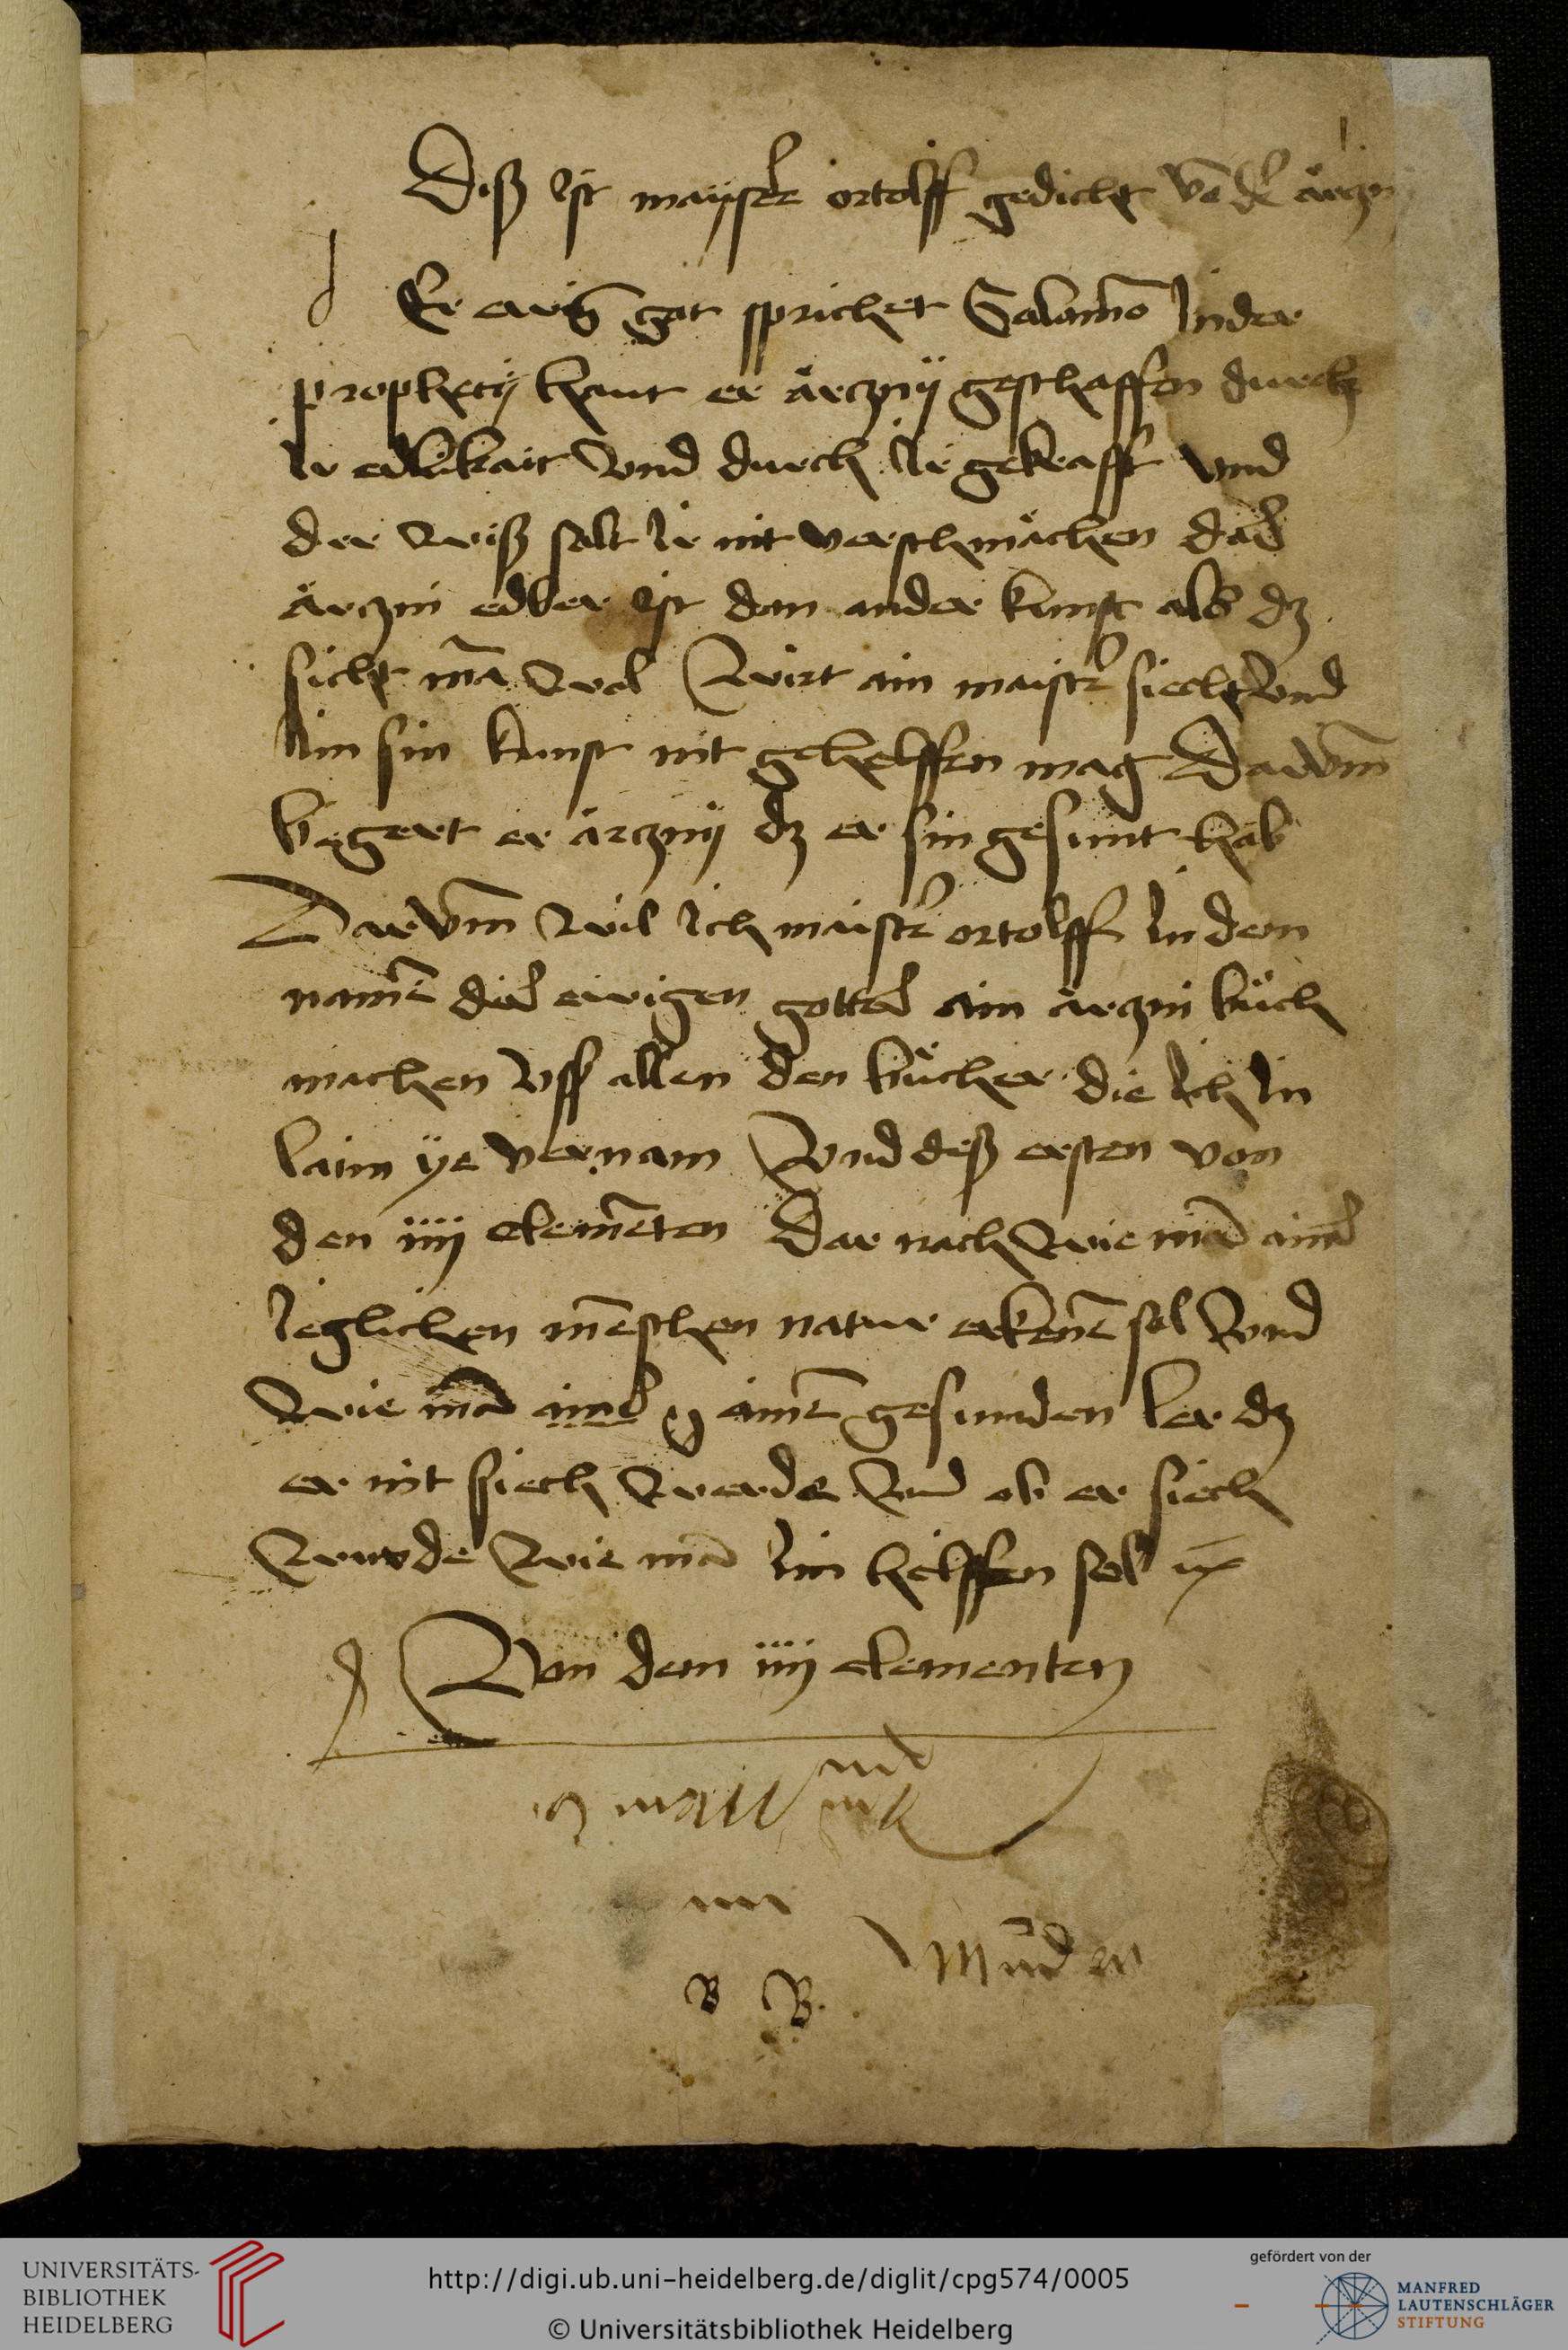 Diß ist mayster ortolff gedicht vō der ärczn
d Er ewig got sprichet Salomō In der
prophecÿ haut er ärcznÿ geschaffen durch
Ir edlikait Vnd durch Ir gekrafft vnd
der wiß solt Ir nit verschmächen das
ärczni edler ist dan ander kunst als dz
sicht mā wol Wirt ain maister siecht Vnd
Im sin kunst nit gehelffen mag Darvm̄
begert er ärcznÿ dz er sin gesunt hab
Darvm̄ wil Ich maister ortolff In dem
namē des ewigen gottes ain ärczni büch
machen vsß allen den bücher die Ich In
latin ÿe vernam Vnd deß ersten von
den iiij elemēten Dar nach wie mā aines
ieglichen mēschen natur erkenē sol Vnd
wie mā aines ainē gesunden ler dz
er nit siech werde Vnd ob er siech
wurde wie mā Im helffen sol
Von dem iiij elementen
B B
UNIVERSITÄTS-
BIBLIOTHEK
HEIDELBERG
http://digi.ub.uni-heidelberg.de/diglit/cpg574/0005
© Universitätsbibliothek Heidelberg
gefördert von der
MANFRED
LAUTENSCHLÄGER
STIFTUNG